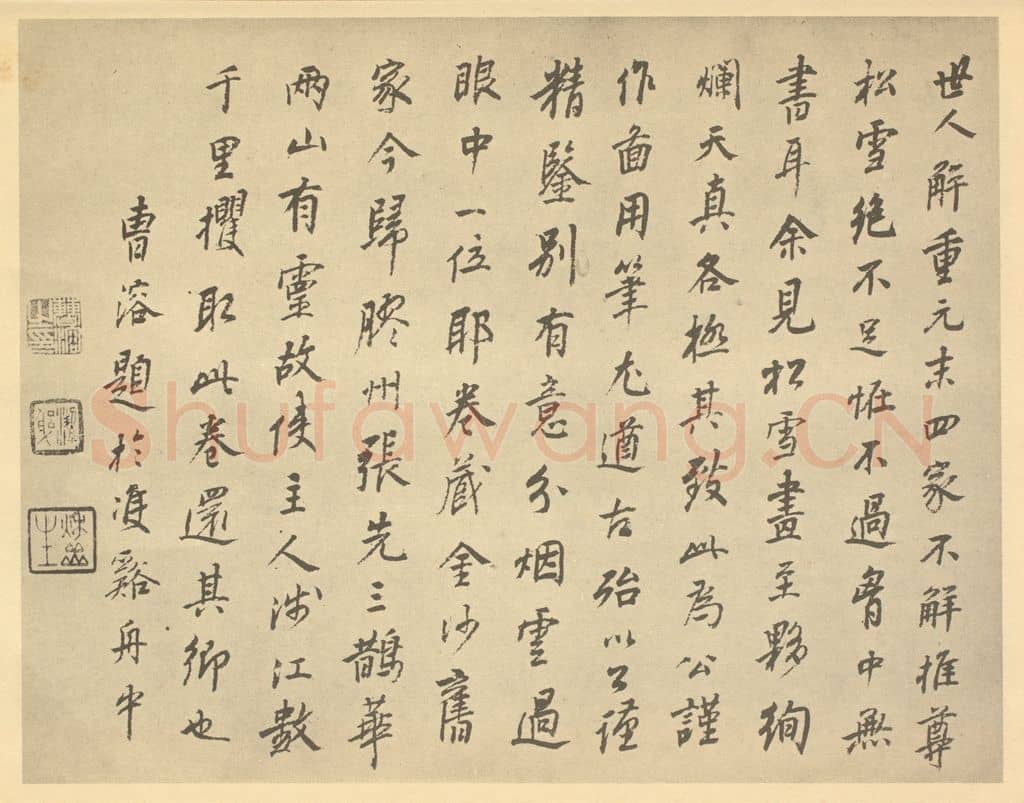 世人解重元末四家不解推尊
松雪絶不足恠不過胷中無
書耳余見松雪畫至夥絢
爛天真各極其致此為公謹
作畫用筆尤遒古殆以公謹
精鑒別有意分烟雲過
眼中一位耶卷藏金沙舊
家今歸膠州張先三鵲華
兩山有靈故使主人涉江數
千里攫取此卷還其鄉也
曹溶題於湼谿舟中
Shufawang.CN